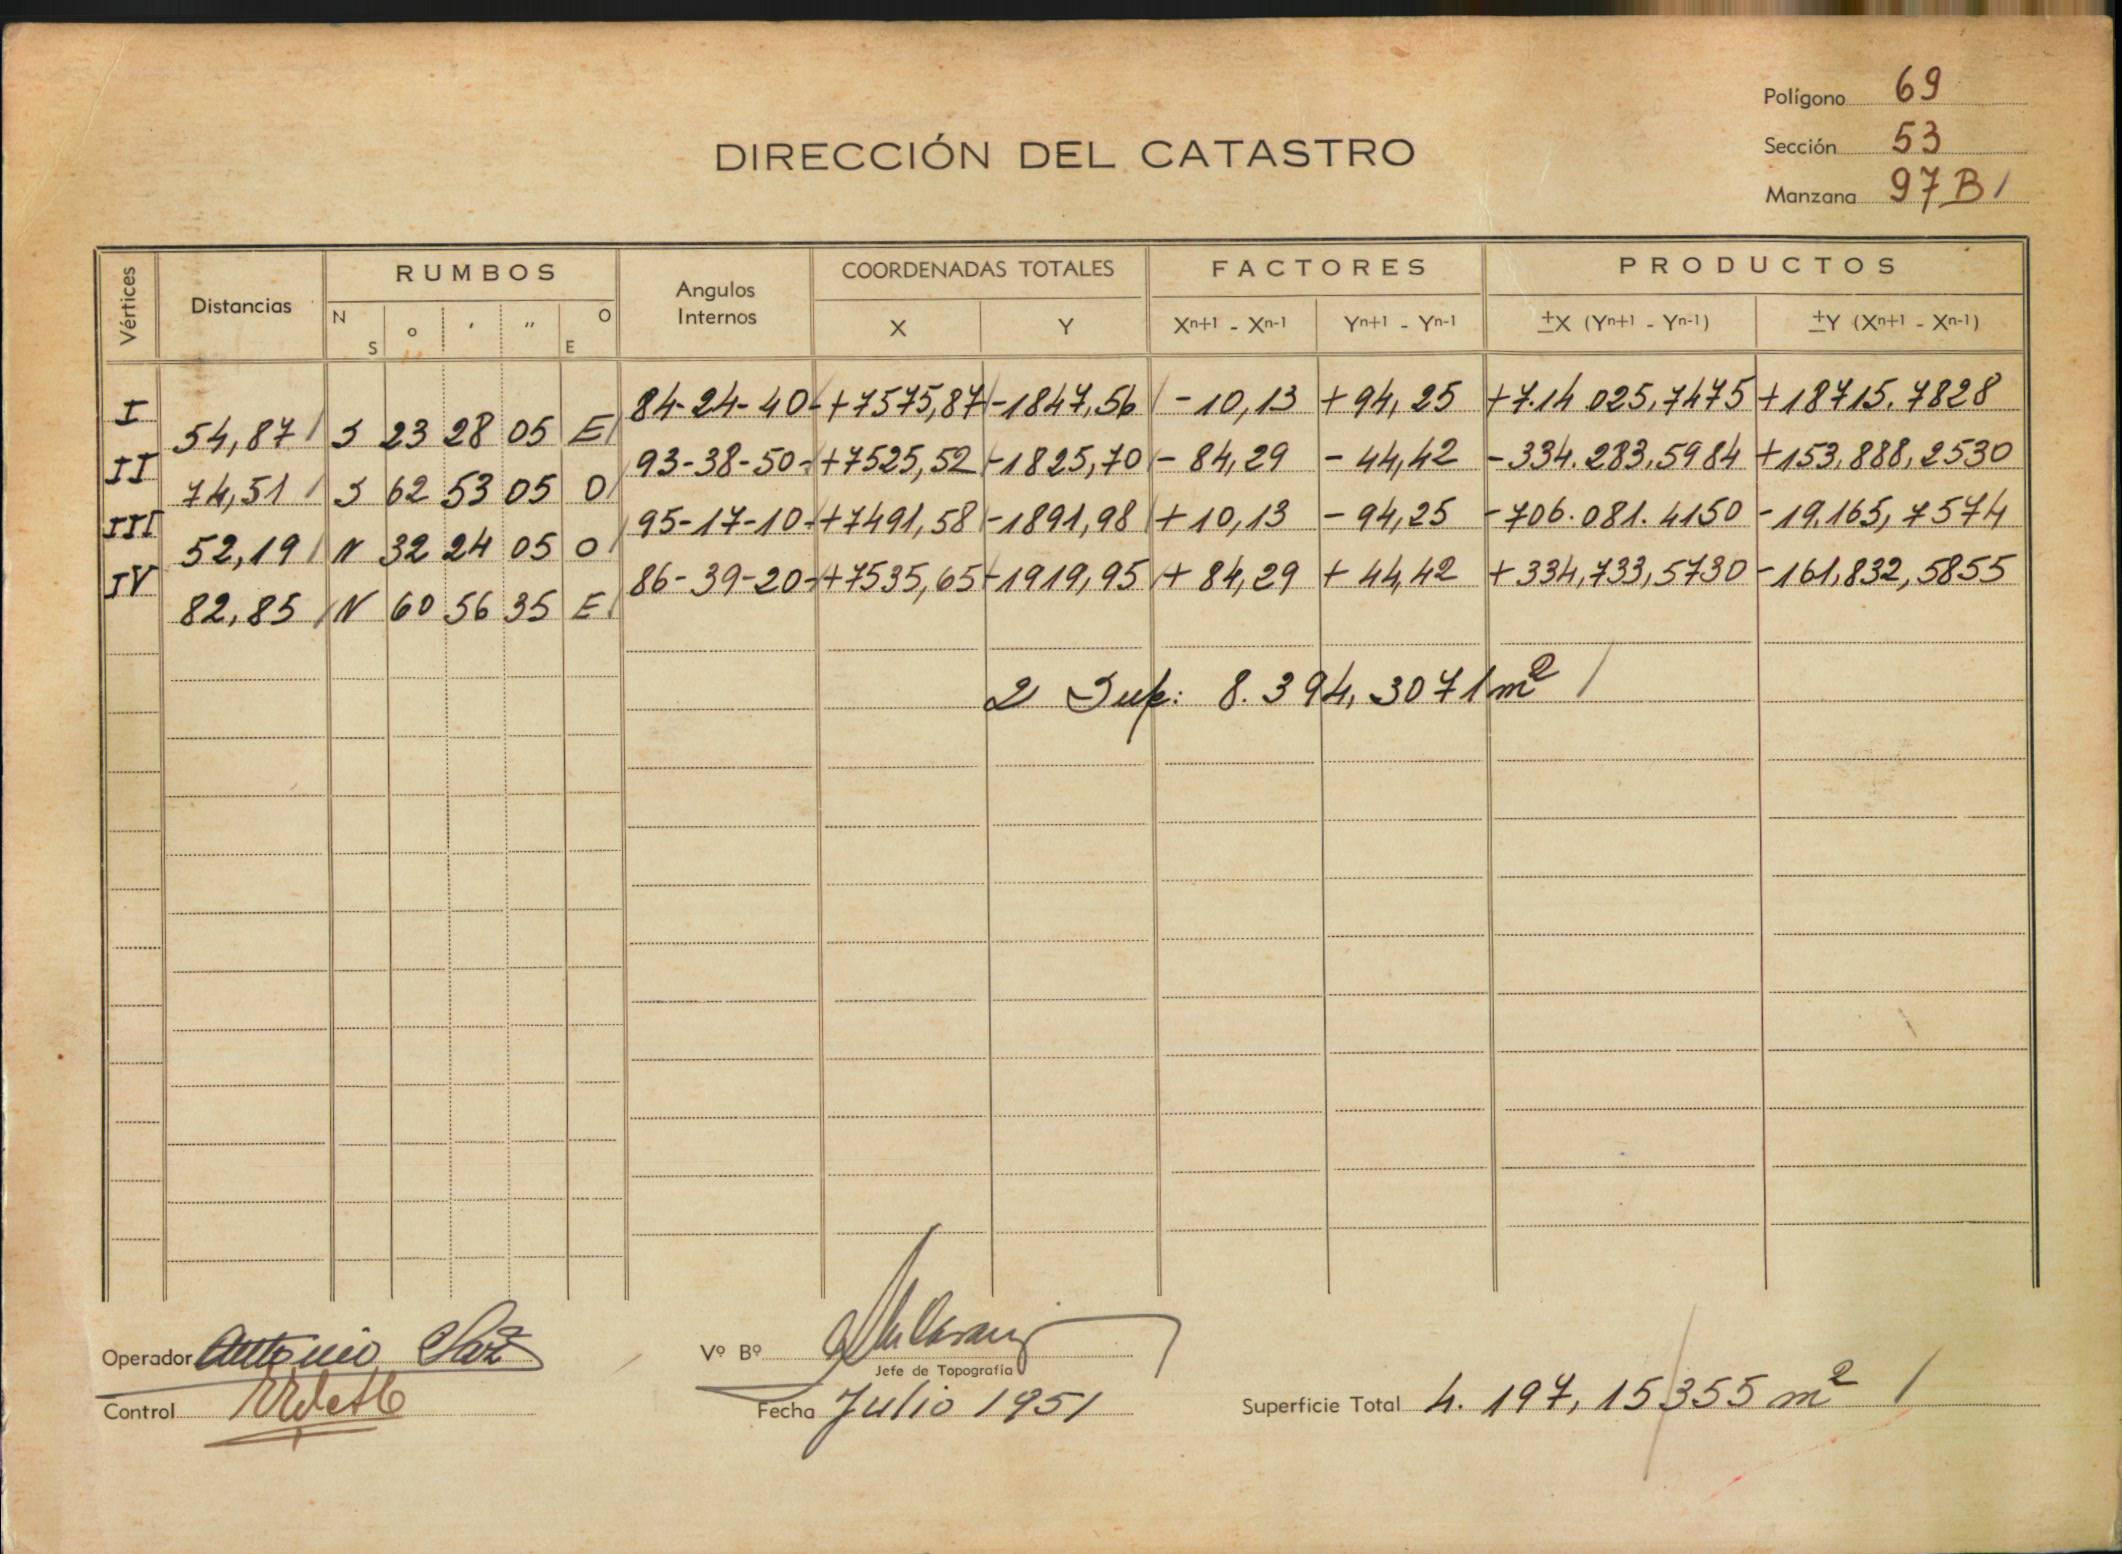 Polígono 69
DIRECCIÓN DEL CATASTRO
Sección 53
Manzana 97 B /
Vértices Distancias RUMBOS Angulos Internos COORDENADAS TOTALES FACTORES PRODUCTOS
N S ° ' " O E X Y Xn+1 - Xn-1 Yn+1 - Yn-1 ±X (Yn+1 - Yn-1) ±Y (Xn+1 - Xn-1)
I 84-24-40 +7575,87 -1847,56 -10,13 +94,25 +7.14 025,7475 +18715.7828
54,87 S 23 28 05 E
II 93-38-50 +7525,52 -1825,70 -84,29 -44,42 -334.283,5984 +153,888,2530
74,51 S 62 53 05 O
III 95-17-10 +7491,58 -1891,98 +10,13 -94,25 -706.081.4150 -19.165,7574
52,19 N 32 24 05 O
IV 86-39-20 +7535,65 -1919,95 +84,29 +44,42 +334,733,5730 -161,832,5855
82,85 N 60 56 35 E
2 Sup: 8.394,3071 m² /
Operador Antonio
Vº Bº
Jefe de Topografía
Control
Fecha Julio 1951
Superficie Total 4.197,15355 m² /